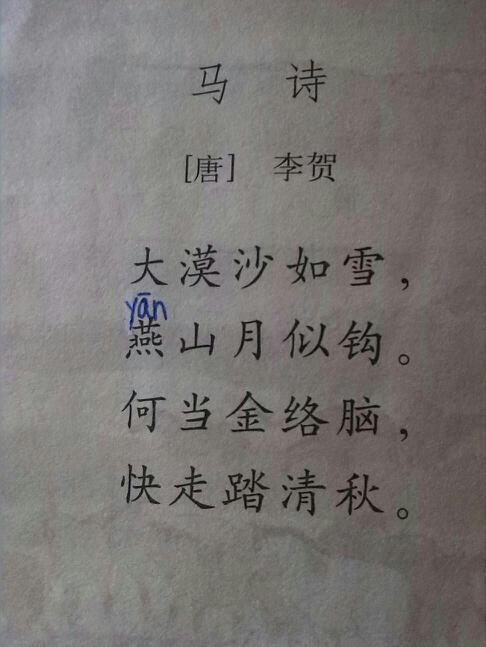 马 诗
[唐] 李贺
大漠沙如雪，
yān
燕山月似钩。
何当金络脑，
快走踏清秋。